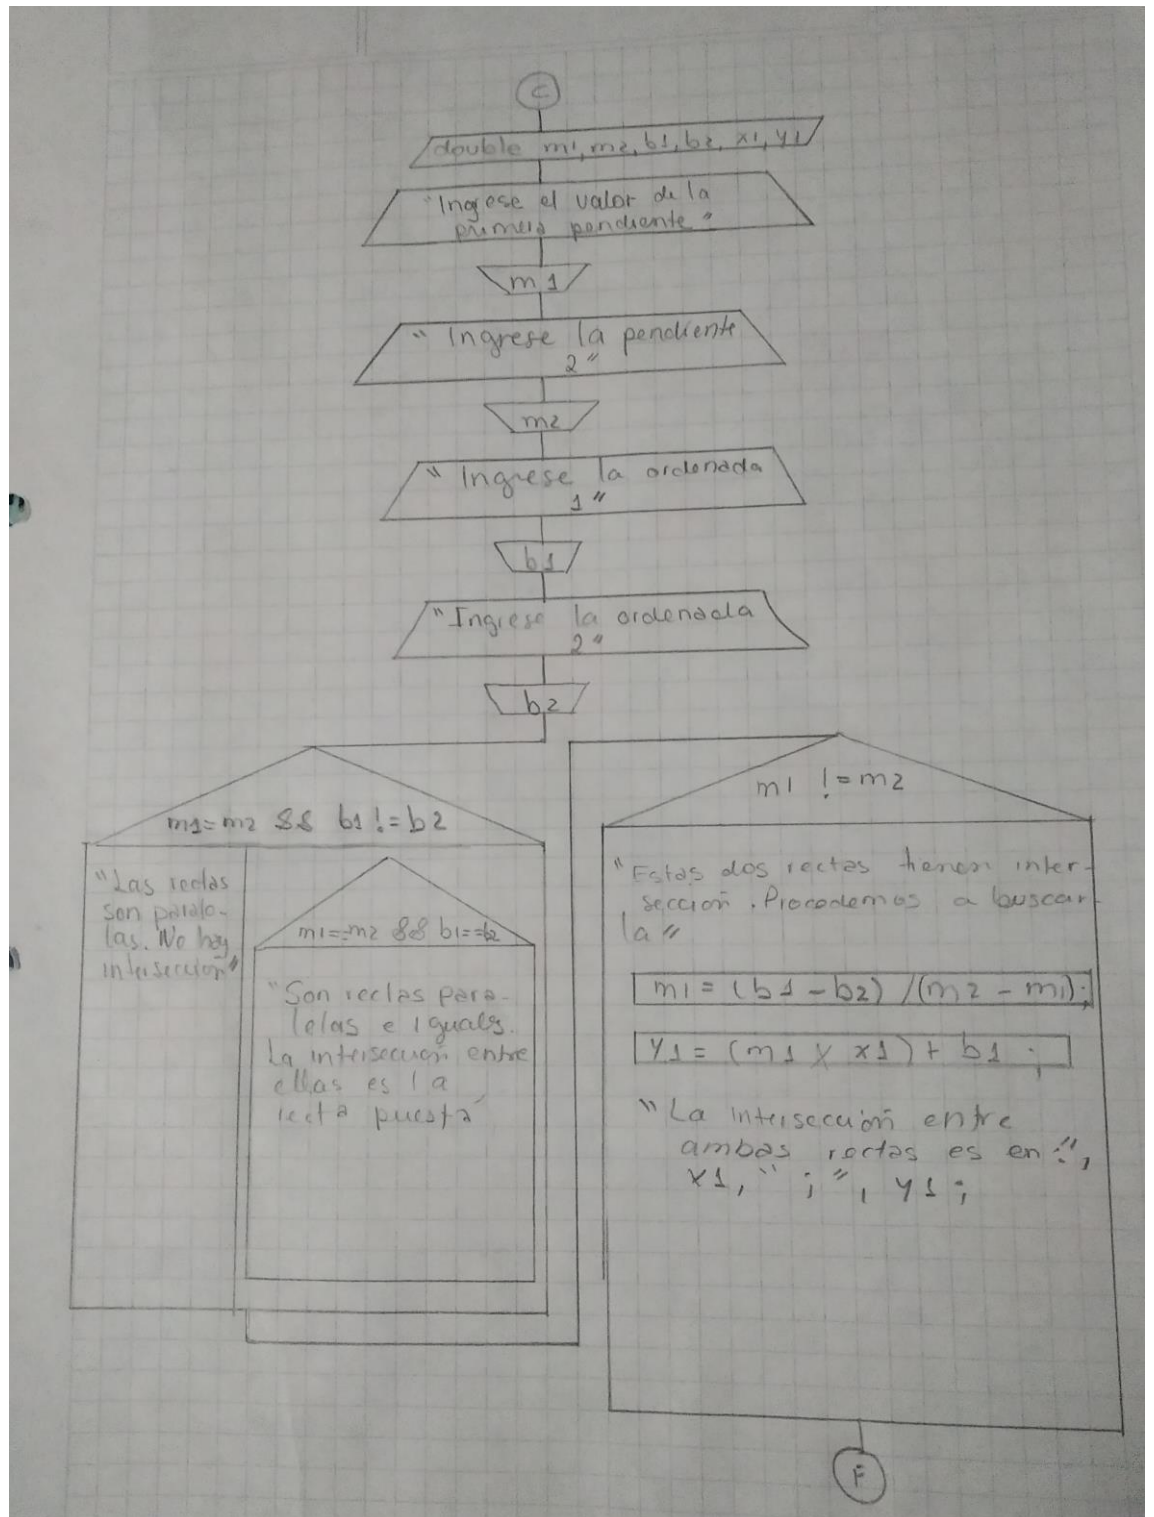 C
double m1, m2, b1, b2, x1, y1
"Ingese el valor de la
primera pendiente"
m1
"Ingrese la pendiente
2"
m2
"Ingrese la ordenada
1"
b1
"Ingrese la ordenada
2"
b2
m1=m2 && b1 != b2
"Las rectas
son parale-
las. No hay
intersección"
m1==m2 && b1==b2
"Son rectas para-
lelas e iguales.
La intersección entre
ellas es la
recta puesta"
m1 != m2
"Estas dos rectas tienen inter-
sección. Procedemos a buscar
la"
m1 = (b1 - b2) / (m2 - m1);
y1 = (m1 x x1) + b1 ;
"La intersección entre
ambas rectas es en:",
x1, " ; ", y1 ;
F